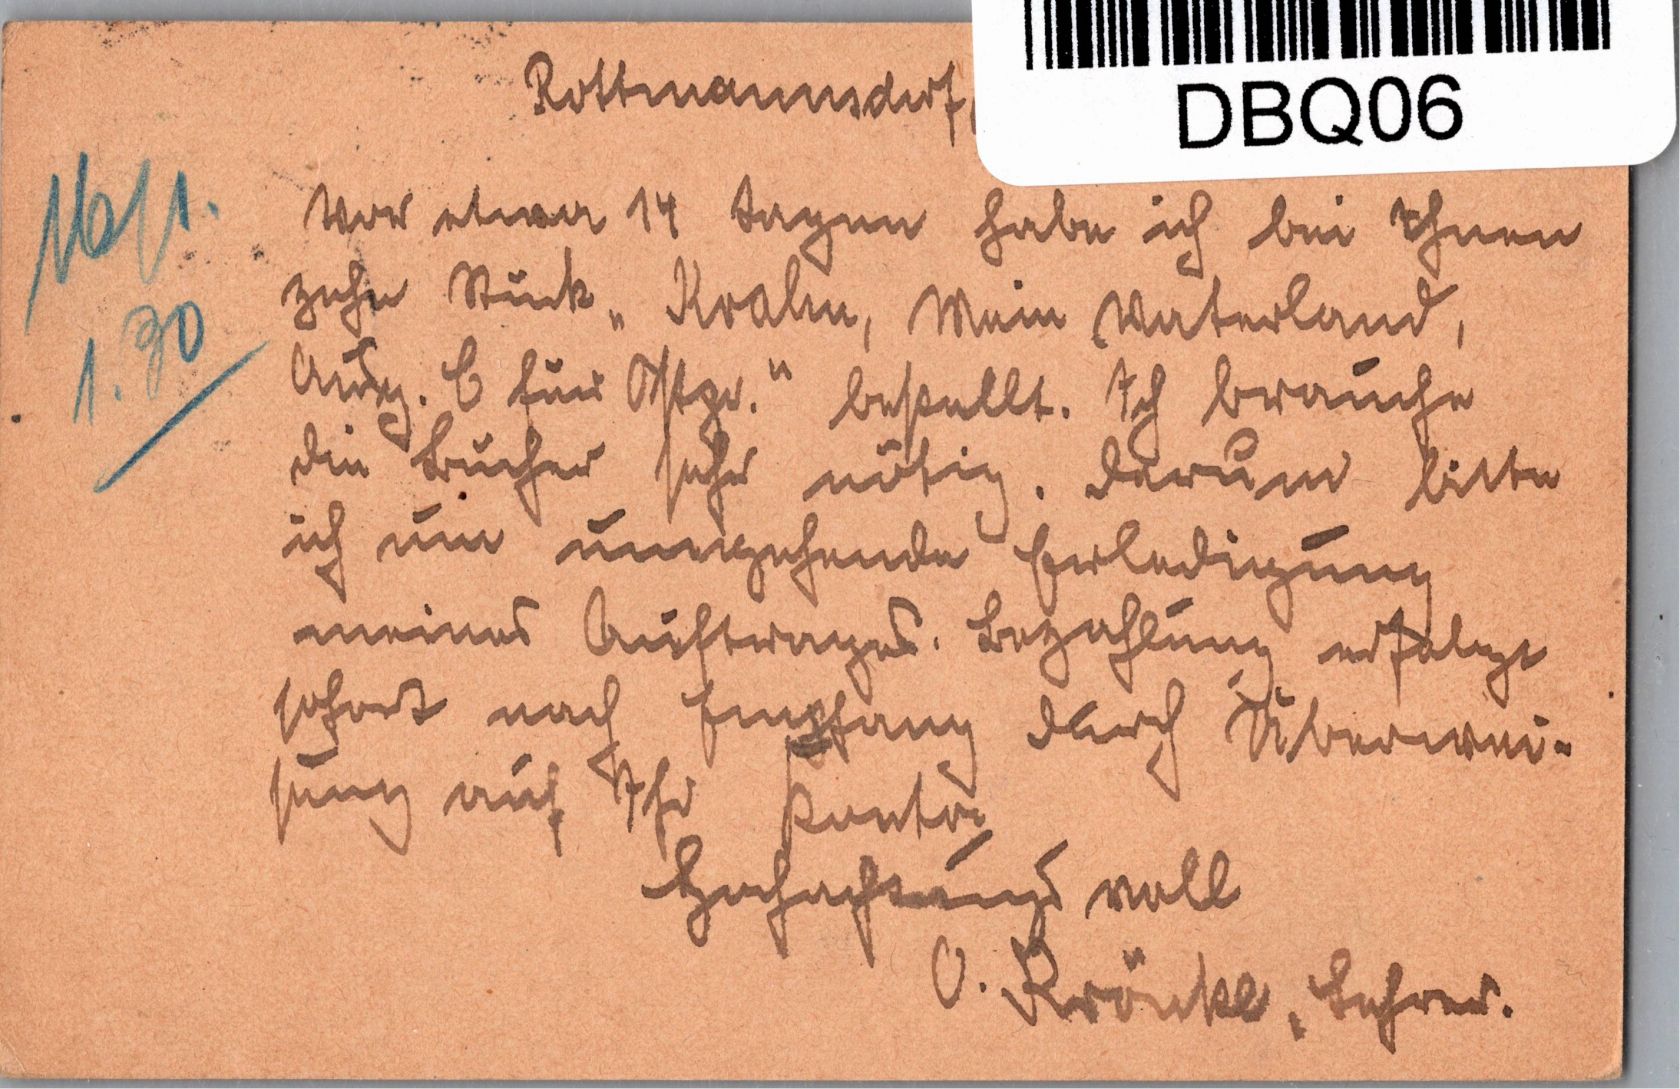 DBQ06
Rottmannsdorf,
16/1.
1.30
Vor etwa 14 Tagen habe ich bei Ihnen
zehn Stück „Krahn, Mein Vaterland,
Ausg. C für Ostpr." bestellt. Ich brauche
die Bücher sehr nötig. Darum bitte
ich um umgehende Erledigung
meines Auftrages. Bezahlung erfolgt
sofort nach Empfang durch Überwei-
sung auf Ihr Konto.
Hochachtungsvoll
O. Krönke, Lehrer.